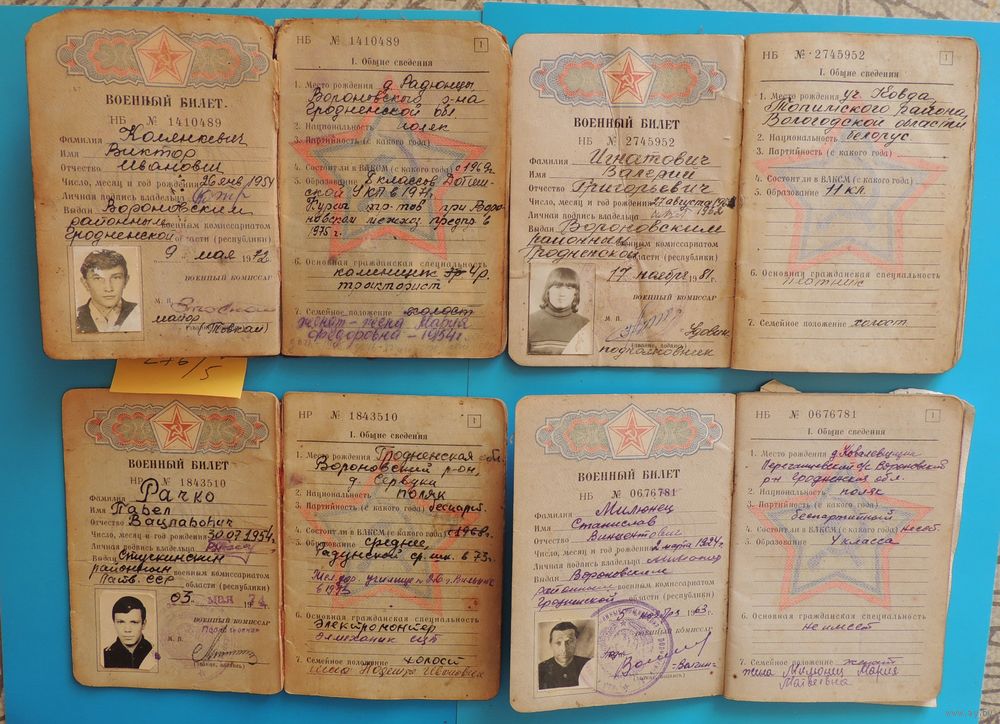 ВОЕННЫЙ БИЛЕТ.
НБ № 1410489
Фамилия Коленкевич
Имя Виктор
Отчество Иванович
Число, месяц и год рождения 26 янв 1954
Личная подпись владельца
Выдан Вороновским
районным военным комиссариатом
Гродненской области (республики)
9 мая 1972
ВОЕННЫЙ КОМИССАР
М. П.
майор
НБ № 1410489
1
I. Общие сведения
1. Место рождения д. Радюнцы
Вороновского р-на
Гродненской обл.
2. Национальность поляк
3. Партийность (с какого года)
4. Состоял ли в ВЛКСМ (с какого года) с 1969г.
5. Образование 8 классов
в 1975 г.
6. Основная гражданская специальность
каменщик 4р.
тракторист
7. Семейное положение холост
женат - жена Мария
Федоровна - 1954г.
ВОЕННЫЙ БИЛЕТ
НБ № 2745952
Фамилия Игнатович
Имя Валерий
Отчество Григорьевич
Число, месяц и год рождения 27 августа
1962
Личная подпись владельца
Выдан Вороновским
районным военным комиссариатом
Гродненской области (республики)
17 ноября 1981 г.
ВОЕННЫЙ КОМИССАР
М. П.
подполковник
НБ № 2745952
1
I. Общие сведения
1. Место рождения уч. Ковда
Тотемского района,
Вологодской области
2. Национальность белорус
3. Партийность (с какого года)
4. Состоял ли в ВЛКСМ (с какого года)
5. Образование 11 кл.
6. Основная гражданская специальность
плотник
7. Семейное положение холост
276/5
ВОЕННЫЙ БИЛЕТ
НР № 1843510
Фамилия Рачко
Имя Павел
Отчество Вацлавович
Число, месяц и год рождения 30.07.1954
Личная подпись владельца
Выдан
районным военным комиссариатом
Литв. ССР области (республики)
03 мая
ВОЕННЫЙ КОМИССАР
Подполковник
М. П.
НР № 1843510
1
I. Общие сведения
1. Место рождения Гродненская обл.
Вороновский р-он,
д. Сервуки
2. Национальность поляк
3. Партийность (с какого года) беспарт.
4. Состоял ли в ВЛКСМ (с какого года) с 1968г.
5. Образование среднее,
ср. шк. в 73г.
6. Основная гражданская специальность
Электромонтер
7. Семейное положение холост
ВОЕННЫЙ БИЛЕТ
НБ № 0676781
Фамилия Милюнец
Имя Станислав
Отчество Винцентович
Число, месяц и год рождения 2 марта 1924г.
Личная подпись владельца
Выдан Вороновским
районным военным комиссариатом
Гродненской области (республики)
ноября 63 г.
ВОЕННЫЙ КОМИССАР
НБ № 0676781
1
I. Общие сведения
1. Место рождения
Вороновский
р-н Гродненской обл.
2. Национальность поляк
3. Партийность (с какого года)
беспартийный
4. Состоял ли в ВЛКСМ (с какого года)
5. Образование 4 класса
6. Основная гражданская специальность
не имеет
7. Семейное положение женат
жена Милюнец Мария
Матвеевна